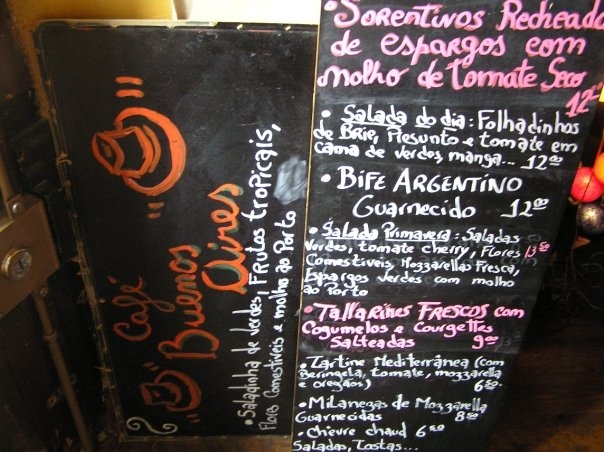 Café
Buenos
Aires
• Saladinha de verdes, Frutos tropicais,
Flores Comestiveis e molho ao Porto
• Sorentinos Recheados
de espargos com
molho de tomate Seco
12⁰⁰
• Salada do dia: Folhadinhos
de Brie, Presunto e tomate em
cama de verdes, manga... 12⁰⁰
• BIFE ARGENTINO
Guarnecido 12⁰⁰
• Salada Primavera: Saladas
Verdes, tomate cherry, Flores 13⁵⁰
Comestiveis, Mozzarellas Fresca,
Espargos verdes com molho
ao Porto
• Tallarines FRESCOS com
Cogumelos e Courgettes
Salteadas 9⁰⁰
• Tartine Mediterrânea (com
Beringela, tomate, mozzarella
e oregãos) 6⁵⁰
• Milanezas de Mozzarella
Guarnecidas 8⁵⁰
• Chèvre chaud 6⁵⁰
Saladas, Tostas...